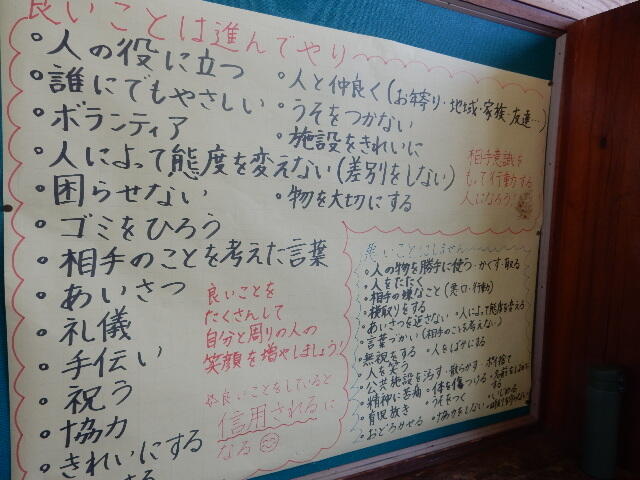 良いことは進んでやり
・人の役に立つ
・誰にでもやさしい
・ボランティア
・人によって態度を変えない(差別をしない)
・困らせない
・ゴミをひろう
・相手のことを考えた言葉
・あいさつ
・礼儀
・手伝い
・祝う
・協力
・きれいにする
・人と仲良く(お年寄り・地域・家族・友達…)
・うそをつかない
・施設をきれいに
・物を大切にする
相手意識を
もって行動する
人になろう!
良いことを
たくさんして
自分と周りの人の
笑顔を増やしましょう!
良いことをしていると
信用されるに
なる
悪いことはしません
・人の物を勝手に使う・かくす・取る
・人をたたく
・相手の嫌なこと(悪口・行動)
・横取りをする
・あいさつを返さない ・人によって態度を変える
・言葉づかい(相手のことを考えない)
・無視をする ・人をばかにする
・人を笑う
・公共施設を汚す・散らかす・ポイ捨て
・精神に苦痛・体を傷つける
・うそをつく ・いじめる
・おどろかせる ・協力をしない